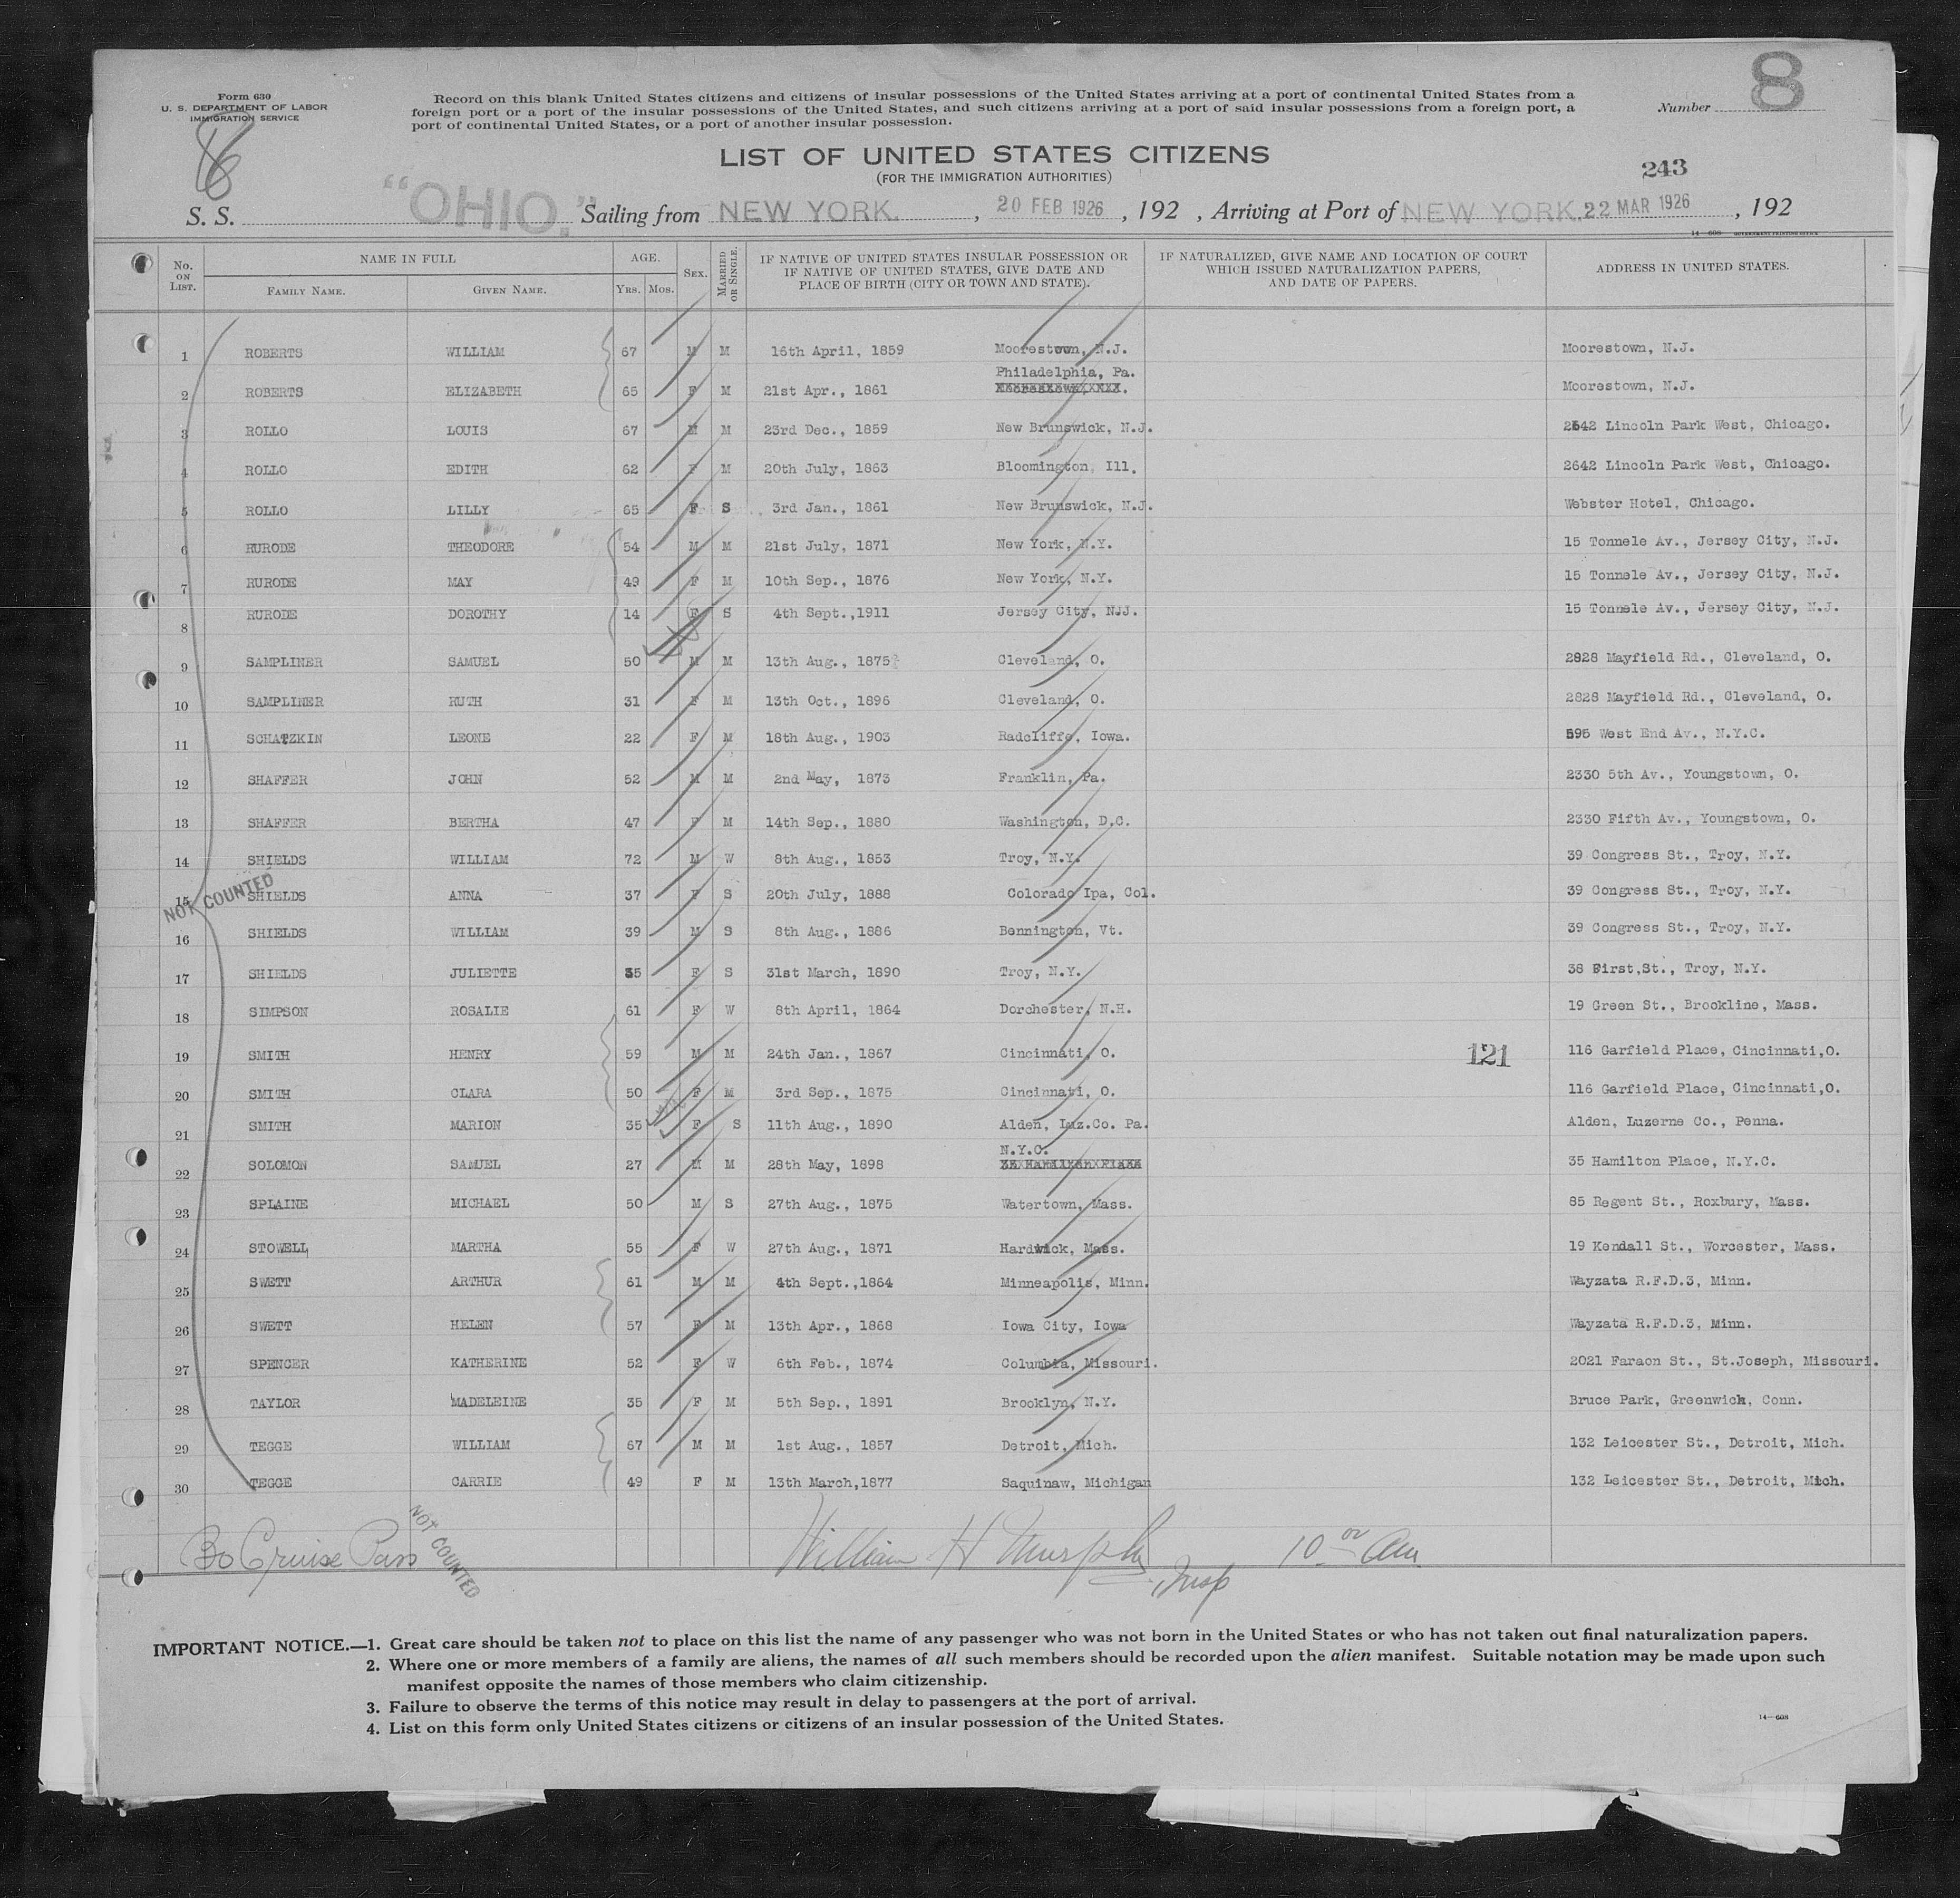 Form 630
U. S. DEPARTMENT OF LABOR
IMMIGRATION SERVICE
Record on this blank United States citizens and citizens of insular possessions of the United States arriving at a port of continental United States from a
foreign port or a port of the insular possessions of the United States, and such citizens arriving at a port of said insular possessions from a foreign port, a
port of continental United States, or a port of another insular possession.
Number 8
LIST OF UNITED STATES CITIZENS
(FOR THE IMMIGRATION AUTHORITIES)
243
S. S. "OHIO." Sailing from NEW YORK. , 20 FEB 1926 , 192 , Arriving at Port of NEW YORK. 22 MAR 1926 , 192
14—608 GOVERNMENT PRINTING OFFICE
No. ON LIST. NAME IN FULL FAMILY NAME. GIVEN NAME. AGE. YRS. MOS. SEX. MARRIED OR SINGLE. IF NATIVE OF UNITED STATES INSULAR POSSESSION OR IF NATIVE OF UNITED STATES, GIVE DATE AND PLACE OF BIRTH (CITY OR TOWN AND STATE). IF NATURALIZED, GIVE NAME AND LOCATION OF COURT WHICH ISSUED NATURALIZATION PAPERS, AND DATE OF PAPERS. ADDRESS IN UNITED STATES.
1 ROBERTS WILLIAM 67 M M 16th April, 1859 Moorestown, N.J. Moorestown, N.J.
Philadelphia, Pa.
2 ROBERTS ELIZABETH 65 F M 21st Apr., 1861 Moorestown, N.J.
3 ROLLO LOUIS 67 M M 23rd Dec., 1859 New Brunswick, N.J. 2642 Lincoln Park West, Chicago.
4 ROLLO EDITH 62 F M 20th July, 1863 Bloomington, Ill. 2642 Lincoln Park West, Chicago.
5 ROLLO LILLY 65 F S 3rd Jan., 1861 New Brunswick, N.J. Webster Hotel, Chicago.
6 RURODE THEODORE 54 M M 21st July, 1871 New York, N.Y. 15 Tonnele Av., Jersey City, N.J.
7 RURODE MAY 49 F M 10th Sep., 1876 New York, N.Y. 15 Tonnele Av., Jersey City, N.J.
8 RURODE DOROTHY 14 F S 4th Sept.,1911 Jersey City, NJJ. 15 Tonnele Av., Jersey City, N.J.
9 SAMPLINER SAMUEL 50 M M 13th Aug., 1875 Cleveland, O. 2828 Mayfield Rd., Cleveland, O.
10 SAMPLINER RUTH 31 F M 13th Oct., 1896 Cleveland, O. 2828 Mayfield Rd., Cleveland, O.
11 SCHATZKIN LEONE 22 F M 18th Aug., 1903 Radcliffe, Iowa. 595 West End Av., N.Y.C.
12 SHAFFER JOHN 52 M M 2nd May, 1873 Franklin, Pa. 2330 5th Av., Youngstown, O.
13 SHAFFER BERTHA 47 F M 14th Sep., 1880 Washington, D.C. 2330 Fifth Av., Youngstown, O.
14 SHIELDS WILLIAM 72 M W 8th Aug., 1853 Troy, N.Y. 39 Congress St., Troy, N.Y.
NOT COUNTED
15 SHIELDS ANNA 37 F S 20th July, 1888 Colorado Ipa, Col. 39 Congress St., Troy, N.Y.
16 SHIELDS WILLIAM 39 M S 8th Aug., 1886 Bennington, Vt. 39 Congress St., Troy, N.Y.
17 SHIELDS JULIETTE 35 F S 31st March, 1890 Troy, N.Y. 38 First,St., Troy, N.Y.
18 SIMPSON ROSALIE 61 F W 8th April, 1864 Dorchester, N.H. 19 Green St., Brookline, Mass.
19 SMITH HENRY 59 M M 24th Jan., 1867 Cincinnati, O. 121 116 Garfield Place, Cincinnati,O.
20 SMITH CLARA 50 F M 3rd Sep., 1875 Cincinnati, O. 116 Garfield Place, Cincinnati,O.
21 SMITH MARION 35 F S 11th Aug., 1890 Alden, Luz.Co. Pa. Alden, Luzerne Co., Penna.
N.Y.C.
22 SOLOMON SAMUEL 27 M M 28th May, 1898 35 Hamilton Place, N.Y.C.
23 SPLAINE MICHAEL 50 M S 27th Aug., 1875 Watertown, Mass. 85 Regent St., Roxbury, Mass.
24 STOWELL MARTHA 55 F W 27th Aug., 1871 Hardwick, Mass. 19 Kendall St., Worcester, Mass.
25 SWETT ARTHUR 61 M M 4th Sept.,1864 Minneapolis, Minn. Wayzata R.F.D.3, Minn.
26 SWETT HELEN 57 F M 13th Apr., 1868 Iowa City, Iowa Wayzata R.F.D.3, Minn.
27 SPENCER KATHERINE 52 F W 6th Feb., 1874 Columbia, Missouri. 2021 Faraon St., St.Joseph, Missouri.
28 TAYLOR MADELEINE 35 F M 5th Sep., 1891 Brooklyn, N.Y. Bruce Park, Greenwich, Conn.
29 TEGGE WILLIAM 67 M M 1st Aug., 1857 Detroit, Mich. 132 Leicester St., Detroit, Mich.
30 TEGGE CARRIE 49 F M 13th March,1877 Saquinaw, Michigan 132 Leicester St., Detroit, Mich.
30 Cruise Pass NOT COUNTED William H Murphy Insp 10 00 Am
IMPORTANT NOTICE.—1. Great care should be taken not to place on this list the name of any passenger who was not born in the United States or who has not taken out final naturalization papers.
2. Where one or more members of a family are aliens, the names of all such members should be recorded upon the alien manifest. Suitable notation may be made upon such
manifest opposite the names of those members who claim citizenship.
3. Failure to observe the terms of this notice may result in delay to passengers at the port of arrival.
4. List on this form only United States citizens or citizens of an insular possession of the United States.
14—608